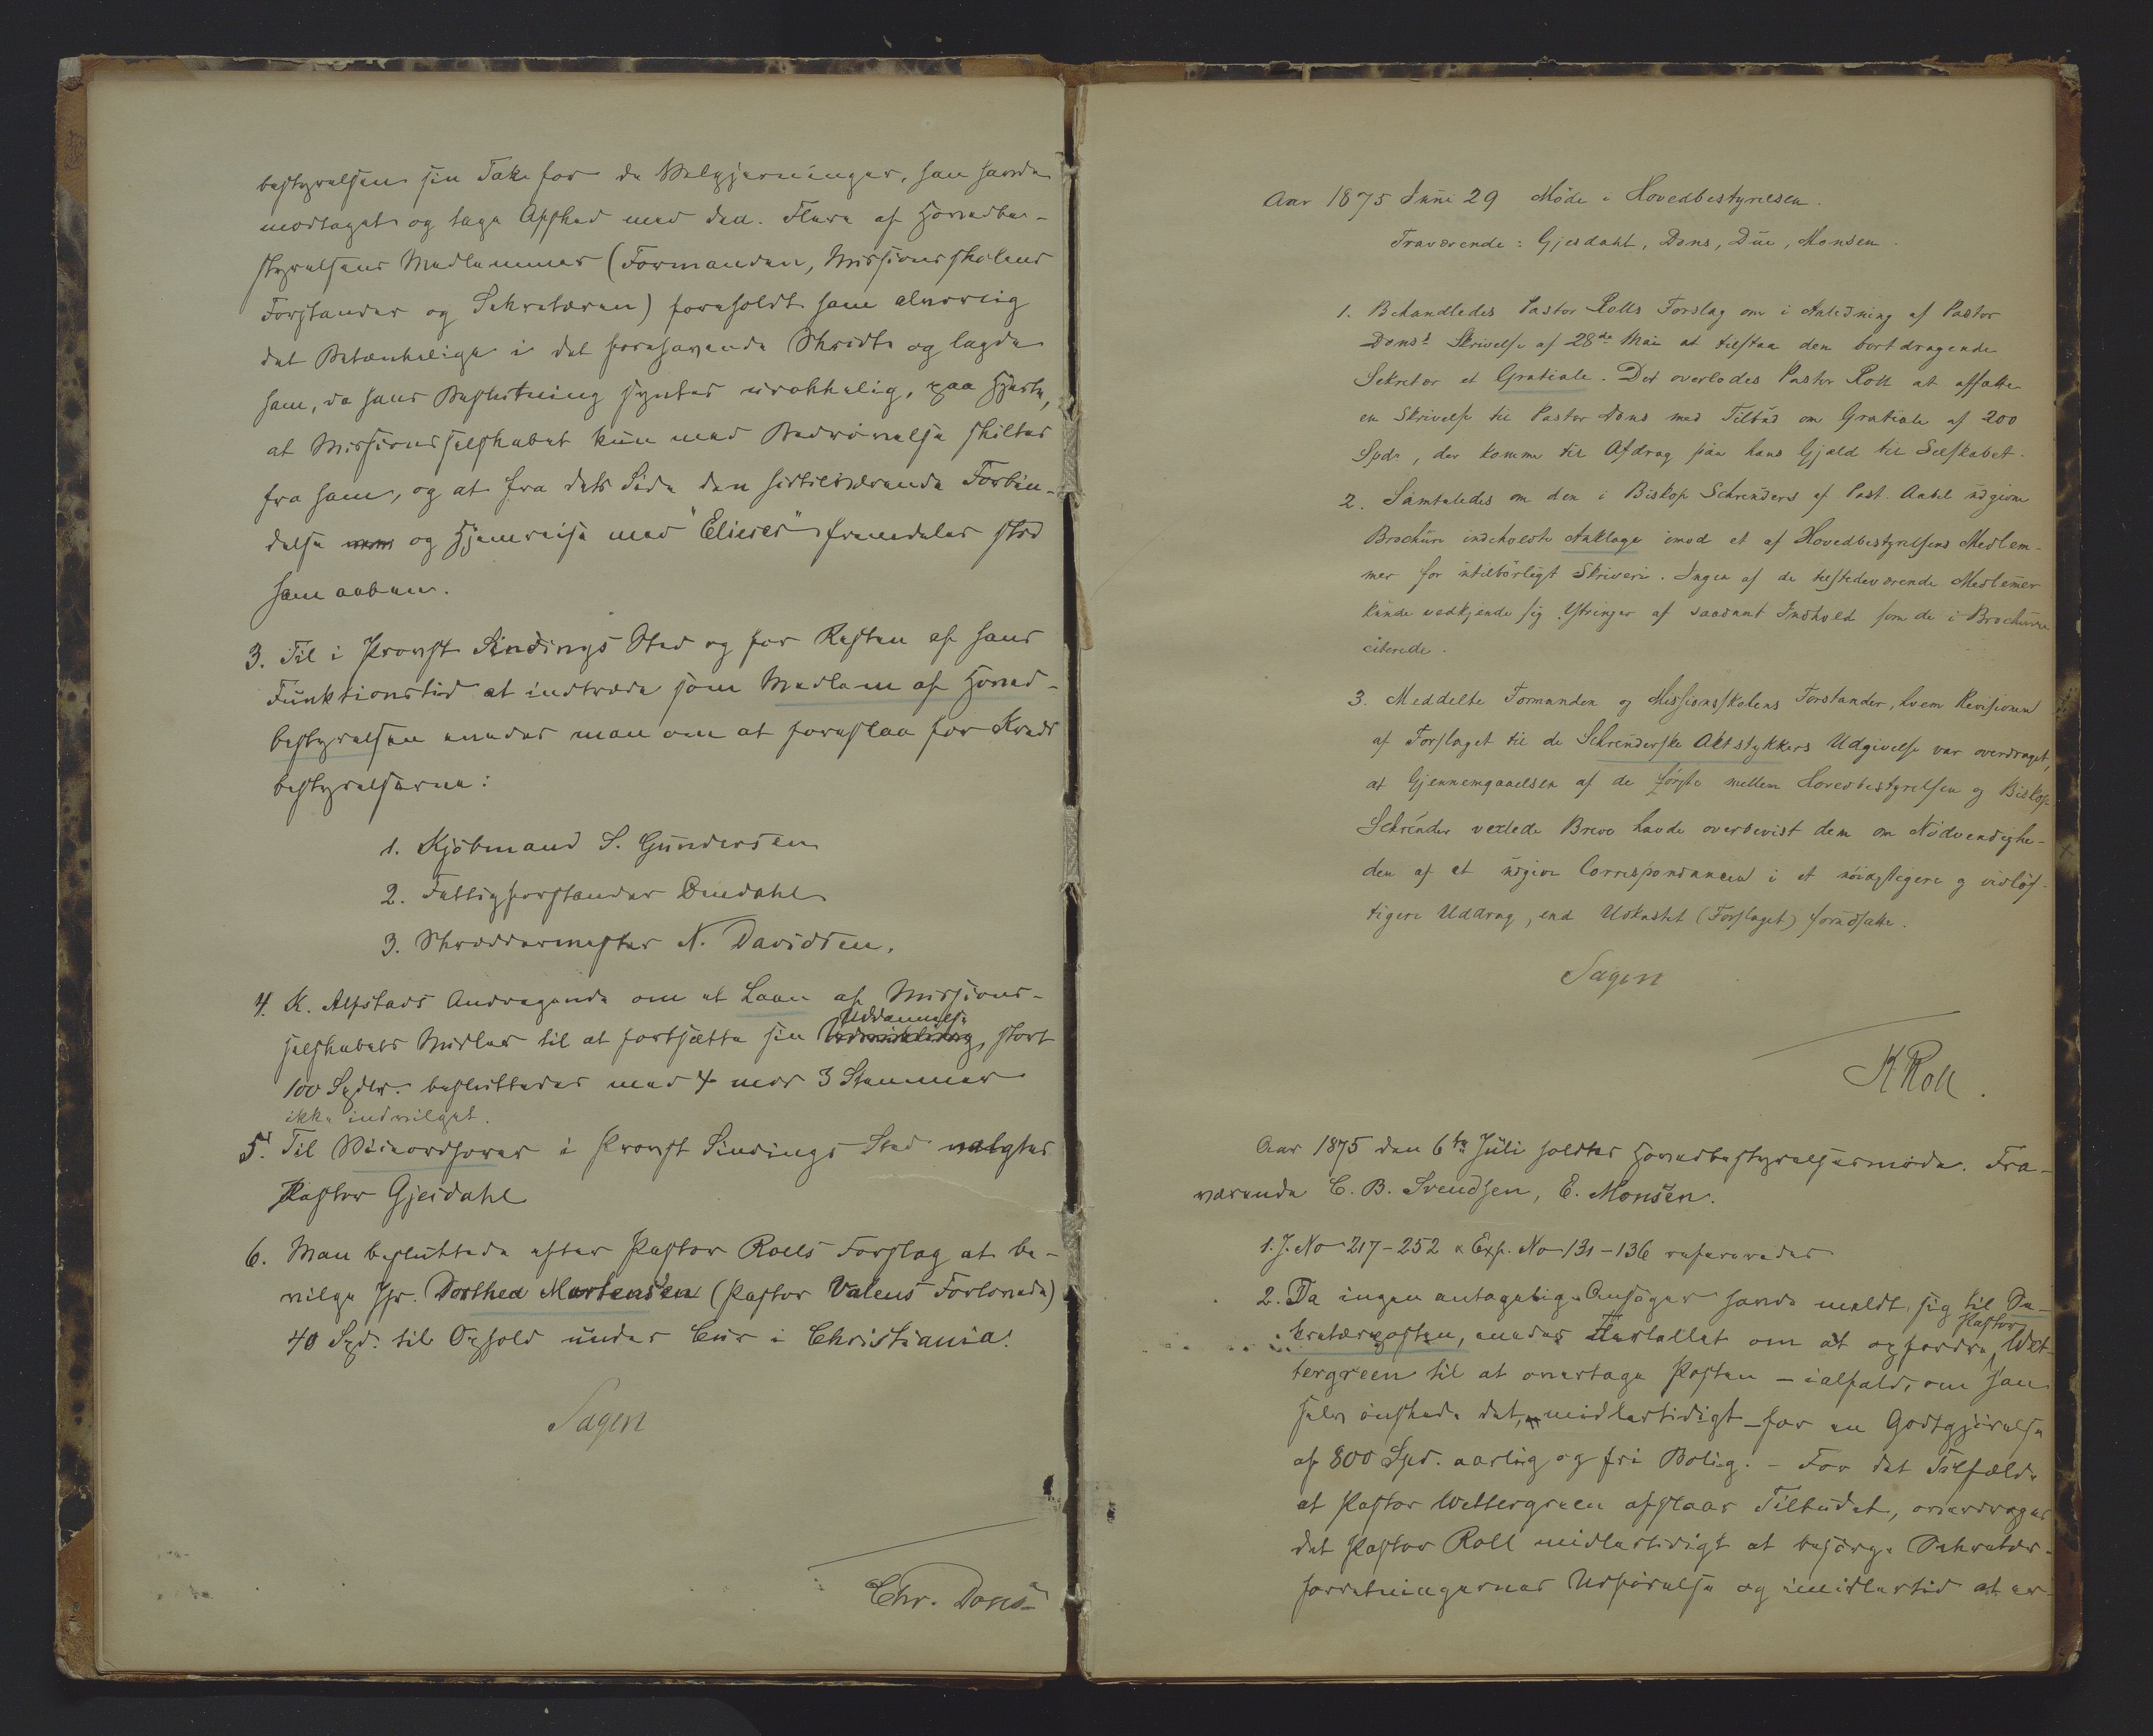 bestyrelsen sin Tak for de Velgjerninger, han havde
modtaget og tage Afsked med den. Flere af Hovedbe-
styrelsens Medlemmer (Formanden, Missionsskolens
Forstander og Sekretæren) foreholdt ham alvorlig
det Betænkelige i det forehavende Skridt og lagde
ham, da hans Beslutning syntes urokkelig, paa Hjerte,
at Missionsselskabet kun med Bedrøvelse skiltes
fra ham, og at fra dets Side den hidtilværende Forbin-
delse og Hjemreise med "Elieser" fremdeles stod
ham aaben.
3. Til i Provst Sindings Sted og for Resten af hans
Funktionstid at indtræde som Medlem af Hoved-
bestyrelsen enedes man om at foreslaa for Kreds
bestyrelserne:
1. Kjøbmand S. Gundersen
2. Fattigforstander Omdahl
3. Skræddermester N. Davidsen.
4. K. Alfstads Andragende om et Laan af Missions-
selskabets Midler til at fortsætte sin Udvikling, stort
Uddannelse
100 Spdlr. besluttedes med 4 mod 3 Stemmer
ikke indvilget.
5. Til Viceordfører i Provst Sindings Sted valgtes
Pastor Gjesdahl
6. Man besluttede efter Pastor Rolls Forslag at be-
vilge Jfr. Dorthea Martensen (Pastor Valens Forlovede)
40 Spd. til Ophold under Cur i Christiania.
Sagen
Chr. Dons
Aar 1875 Juni 29 Møde i Hovedbestyrelsen.
Fraværende: Gjesdahl, Dons, Due, Monsen.
1. Behandledes Pastor Rolls Forslag om i Anledning af Pastor
Dons's Skrivelse af 28de Mai at tilstaa den bortdragende
Sekretær et Gratiale. Det overlodes Pastor Roll at affatte
en Skrivelse til Pastor Dons med Tilbud om Gratiale af 200
Spd., der komme til Afdrag paa hans Gjæld til Selskabet.
2. Samtaledes om den i Biskop Schreuders af Past. Aabel udgivne
Brochure indeholdte Anklage imod et af Hovedbestyrelsens Medlem-
mer for utilbørligt Skriveri. Ingen af de tilstedeværende Medlemer
kunde vedkjende sig Ytringer af saadant Indhold som de i Brochuren
citerede.
3. Meddelte Formanden og Missionsskolens Forstander, hvem Revisionen
af Forslaget til de Schreuderske Aktstykkers Udgivelse var overdraget,
at Gjennemgaaelsen af de første mellem Hovedbestyrelsen og Biskop
Schreuder vexlede Breve havde overbevist dem om Nødvendighe-
den af at udgive Correspondancen i et nøiagtigere og vidtløf-
tigere Uddrag, end Udkastet (Forslaget) forudsatte.
Sagen
K Roll.
Aar 1875 den 6te Juli holdtes Hovedbestyrelsesmøde. Fra-
værende C. B. Svendsen, E. Monsen.
1. J. No 217-252 & Exp. No 131-136 refereredes
2. Da ingen antagelig Ansøger havde meldt sig til Se-
kretærposten, enedes Flertallet om at opfordre Wet-
Pastor
tergreen til at overtage Posten - ialfald, om han
selv ønskede det, midlertidigt - for en Godtgjørelse
af 800 Spd. aarlig og fri Bolig. - For det Tilfælde
at Pastor Wettergreen afslaar Tilbudet, overdroges
det Pastor Roll midlertidigt at besørge Sekretær-
forretningernes Udførelse og imidlertid at er-